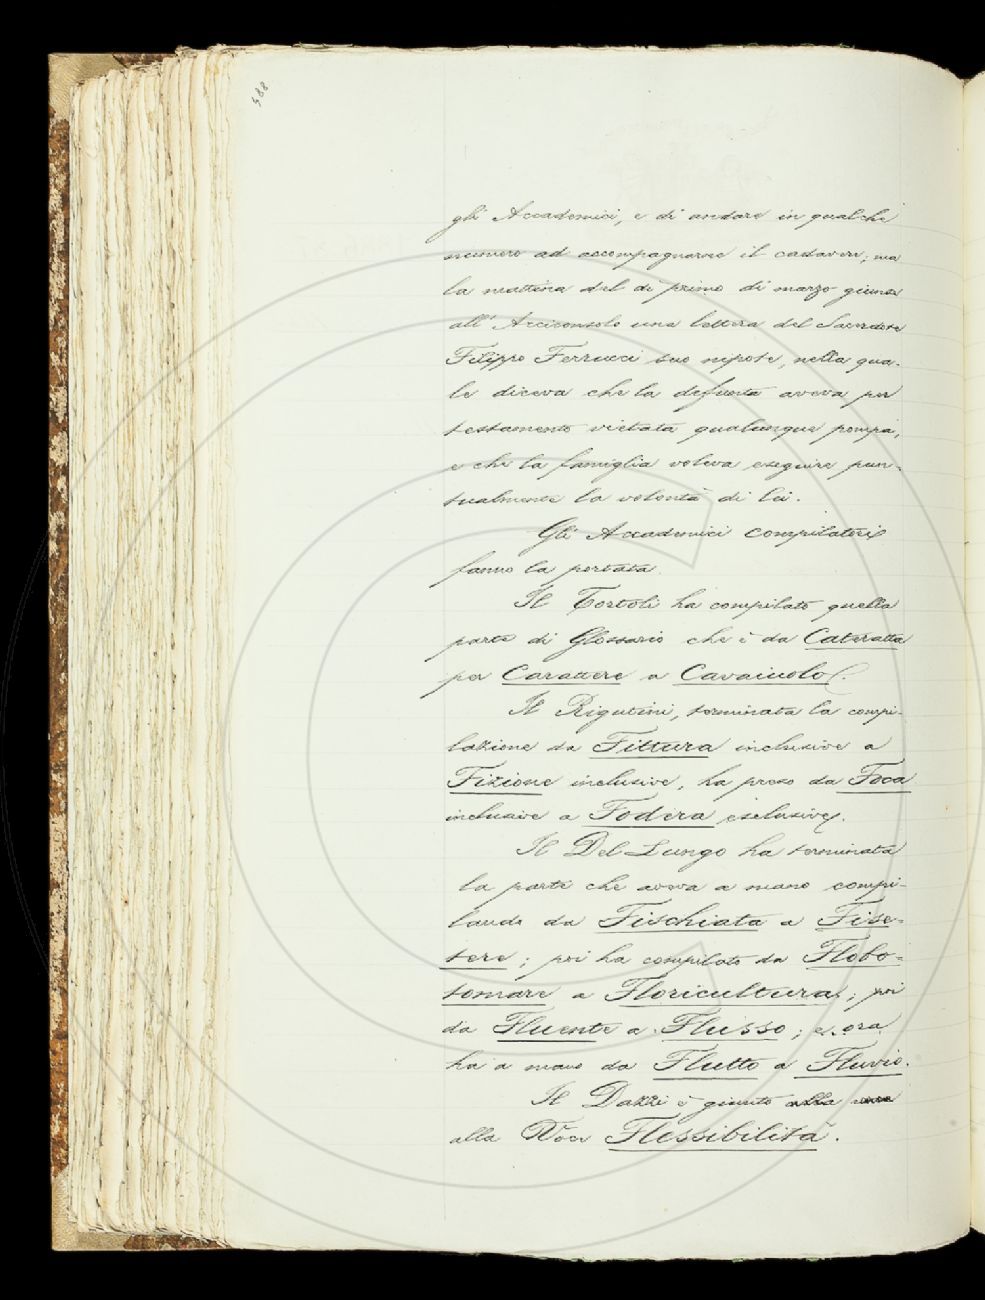 488
gli Accademici, e di andare in qualche
numero ad accompagnarne il cadavere; ma
la mattina del dì primo di marzo giunse
all'Arciconsolo una lettera del Sacerdote
Filippo Ferrucci suo nipote, nella qua-
le diceva che la defunta aveva per
testamento vietata qualunque pompa,
e che la famiglia voleva eseguire pun-
tualmente la volontà di lei.
Gli Accademici compilatori
fanno la portata.
Il Tortoli ha compilato quella
parte di Glossario che è da Cateratta
per Carattere a Cavaiuolo.
Il Rigutini, terminata la compi-
lazione da Fittura inclusive a
Fizione inclusive, ha preso da Foca
inclusive a Fodera esclusive.
Il Del Lungo ha terminata
la parte che aveva a mano compi-
lando da Fischiata a Fise-
tere; poi ha compilato da Flobo-
tomare a Floricultura; poi
da Fluente a Flusso; e ora
ha a mano da Flutto a Fluvio.
Il Dazzi è giunto alla
alla Voce Flessibilità.